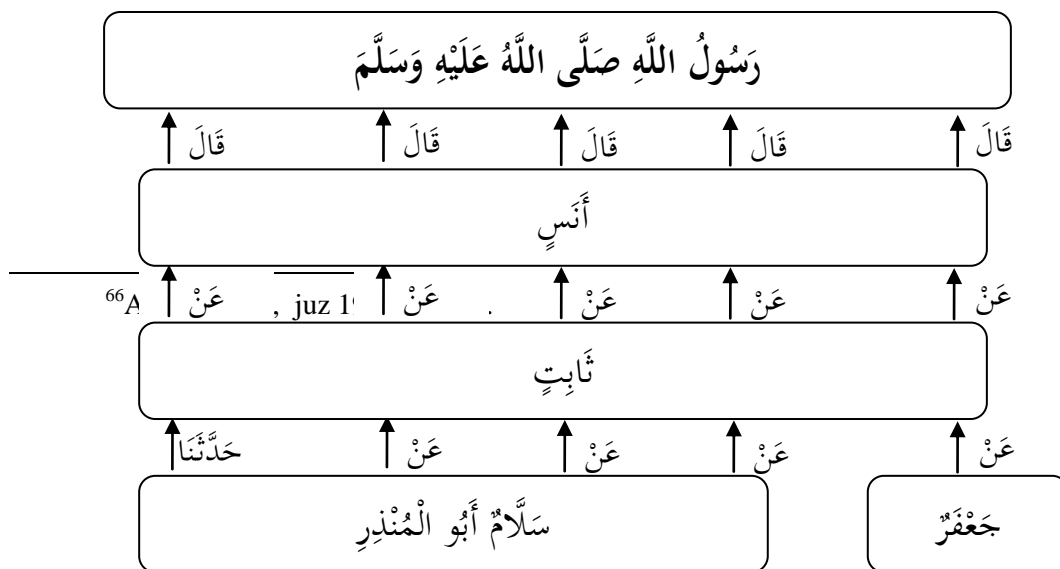 رَسُولُ اللَّهِ صَلَّى اللَّهُ عَلَيْهِ وَسَلَّمَ
قَالَ قَالَ قَالَ قَالَ قَالَ
أَنَسٍ
عَنْ عَنْ عَنْ عَنْ عَنْ
66A , juz 1 .
ثَابِتٍ
عَنْ عَنْ عَنْ عَنْ حَدَّثَنَا
جَعْفَرٌ سَلَّامٌ أَبُو الْمُنْذِرِ